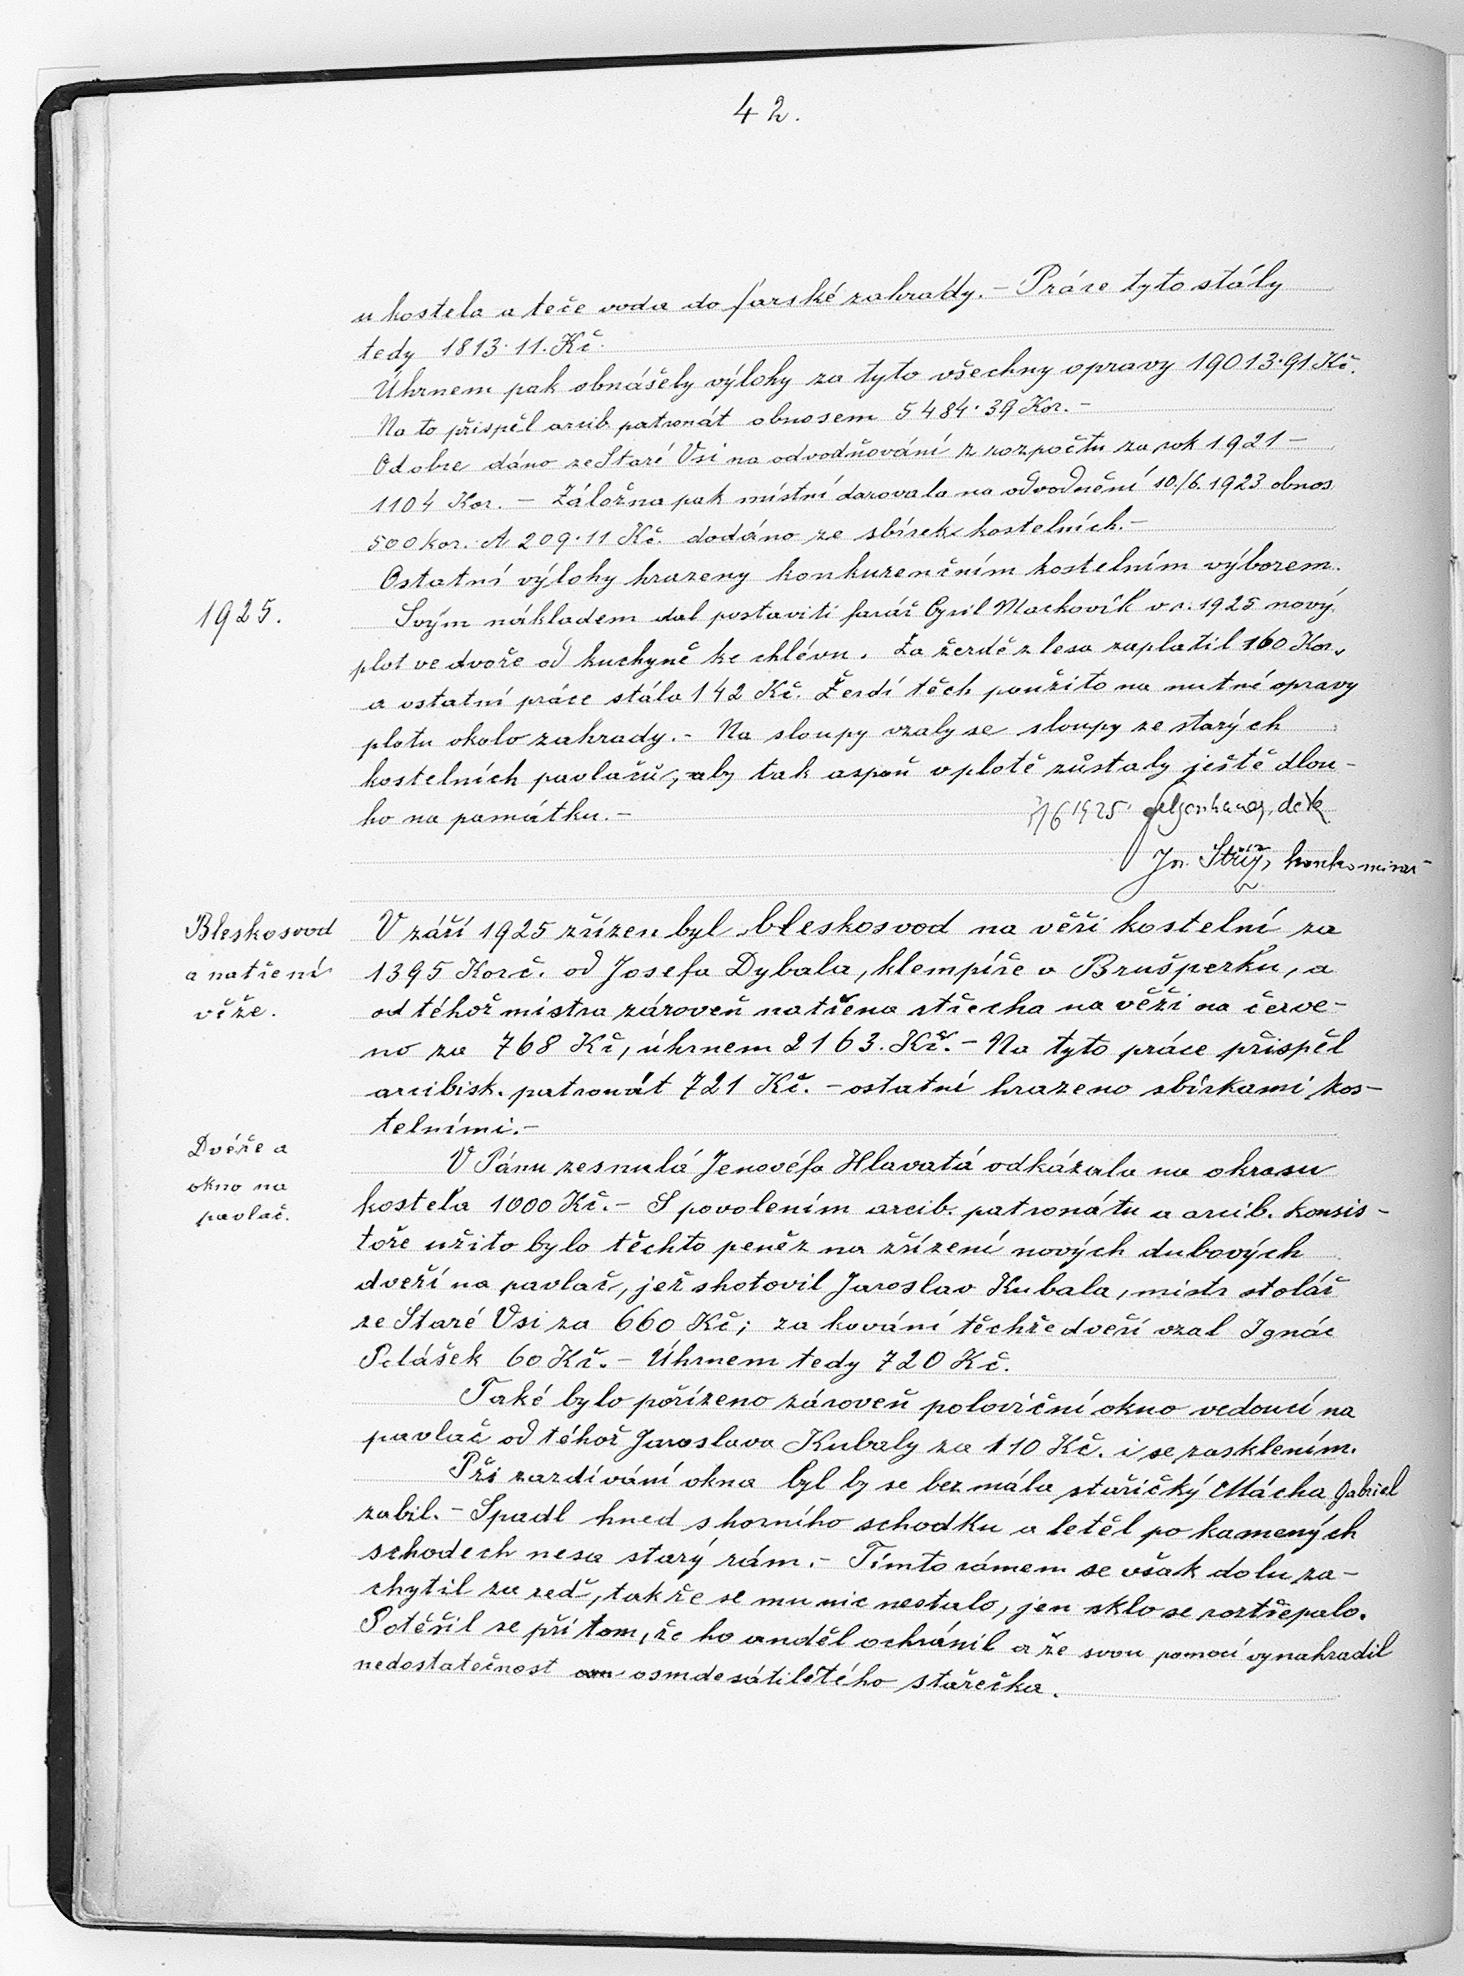 42.
u kostela a teče voda do farské zahrady. – Práce tyto stály
tedy 1813·11. Kč.
Úhrnem pak obnášely výlohy za tyto všechny opravy 19013·91 Kč.
Na to přispěl arcib. patronát obnosem 5484·39 Kor. –
Od obce dáno ze Staré Vsi na odvodňování z rozpočtu za rok 1921 –
1104 Kor. – Záložna pak místní darovala na odvodnění 10./6. 1923 obnos
500 kor. A 209·11 Kč. dodáno ze sbírek kostelních. –
Ostatní výlohy hrazeny konkurenčním kostelním výborem.
1925.
Svým nákladem dal postaviti farář Cyril Mackovík v r. 1925 nový
plot ve dvoře od kuchyně ke chlévu. Za žerdě z lesa zaplatil 160 Kor.,
a ostatní práce stála 142 Kč. Žerdí těch použito na nutné opravy
plotu okolo zahrady. – Na sloupy vzaly se sloupy ze starých
kostelních pavlačů, aby tak aspoň v plotě zůstaly ještě dlou-
ho na památku. –
6 1925 děk.
Jn. Stříž,
Bleskosvod
a natření
věže.
V září 1925 zřízen byl bleskosvod na věži kostelní za
1395 Korč. od Josefa Dybala, klempíře v Brušperku, a
od téhož mistra zároveň natřena střecha na věži na červe-
no za 768 Kč, úhrnem 2163. Kč. – Na tyto práce přispěl
arcibisk. patronát 721 Kč. – ostatní hrazeno sbírkami kos-
telními. –
Dvéře a
okno na
pavlač.
V Pánu zesnulá Jenovéfa Hlavatá odkázala na okrasu
kostela 1000 Kč. – S povolením arcib. patronátu a arcib. konsis-
toře užito bylo těchto peněz na zřízení nových dubových
dveří na pavlač, jež shotovil Jaroslav Kubala, mistr stolář
ze Staré Vsi za 660 Kč; za kování těchže dveří vzal Ignác
Pelášek 60 Kč. – Úhrnem tedy 720 Kč.
Také bylo pořízeno zároveň poloviční okno vedoucí na
pavlač od téhož Jaroslava Kubaly za 110 Kč. i se zasklením.
Při zazdívání okna byl by se bez mála stařičký Mácha Gabriel
zabil. – Spadl hned s horního schodku a letěl po kamených
schodech nesa starý rám. – Tímto rámem se však dolu za-
chytil za zeď, takže se mu nic nestalo, jen sklo se roztřepalo.
Potěšil se při tom, že ho anděl ochránil a že svou pomocí vynahradil
nedostatečnost osmdesátiletého stařečka.